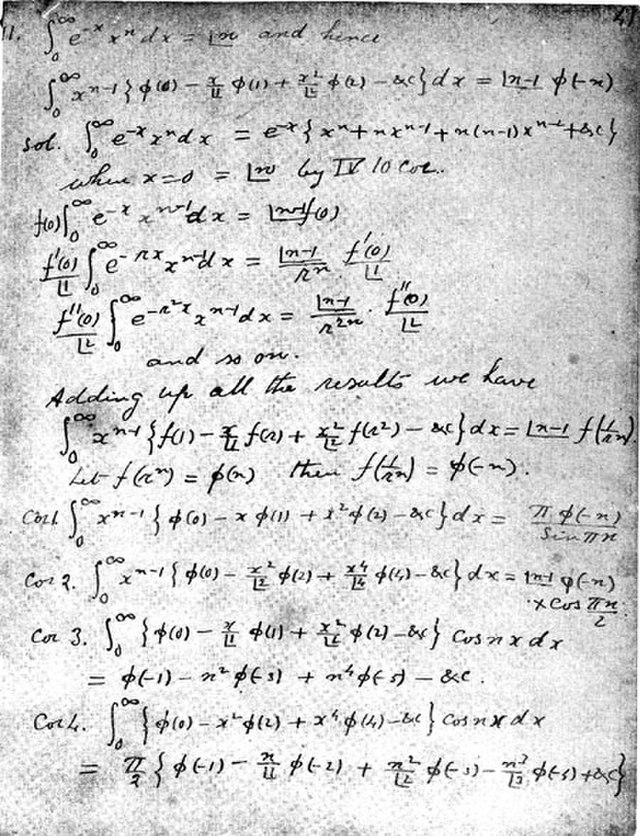 41
11. ∫₀^∞ e^{-x} x^n dx = |n and hence
∫₀^∞ x^{n-1} {φ(0) - x/|1 φ(1) + x²/|2 φ(2) - &c} dx = |n-1 φ(-n)
Sol. ∫₀^∞ e^{-x} x^n dx = e^{-x} {x^n + n x^{n-1} + n(n-1) x^{n-2} + &c}
when x=0 = |n by IV 10 cor.
f(0) ∫₀^∞ e^{-x} x^{n-1} dx = |n-1 f(0)
f'(0)/|1 ∫₀^∞ e^{-rx} x^{n-1} dx = |n-1/r^n f'(0)/|1
f''(0)/|2 ∫₀^∞ e^{-r²x} x^{n-1} dx = |n-1/r^{2n} · f''(0)/|2
and so on.
Adding up all the results we have
∫₀^∞ x^{n-1} {f(1) - x/|1 f(r) + x²/|2 f(r²) - &c} dx = |n-1 f(1/r^n)
Let f(r^n) = φ(n) then f(1/r^n) = φ(-n).
Cor 1. ∫₀^∞ x^{n-1} {φ(0) - x φ(1) + x² φ(2) - &c} dx = π φ(-n)/Sin πn
Cor 2. ∫₀^∞ x^{n-1} {φ(0) - x²/|2 φ(2) + x⁴/|4 φ(4) - &c} dx = |n-1 φ(-n)
× Cos πn/2.
Cor 3. ∫₀^∞ {φ(0) - x/|1 φ(1) + x²/|2 φ(2) - &c} Cos nx dx
= φ(-1) - n² φ(-3) + n⁴ φ(-5) - &c.
Cor 4. ∫₀^∞ {φ(0) - x² φ(2) + x⁴ φ(4) - &c} Cos nx dx
= π/2 {φ(-1) - n/|1 φ(-2) + n²/|2 φ(-3) - n³/|3 φ(-4) + &c}